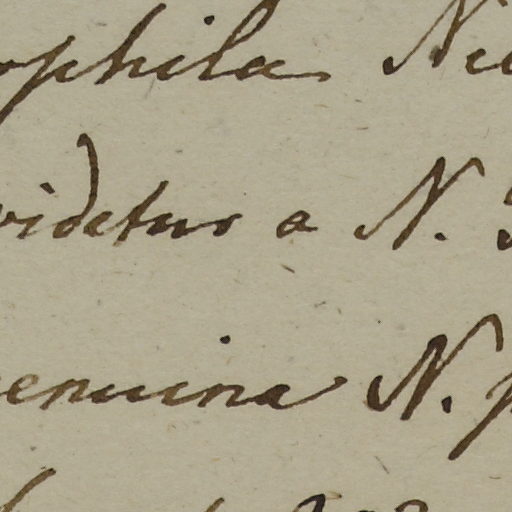 ophila Ni
videtur a N.
genuina N. p